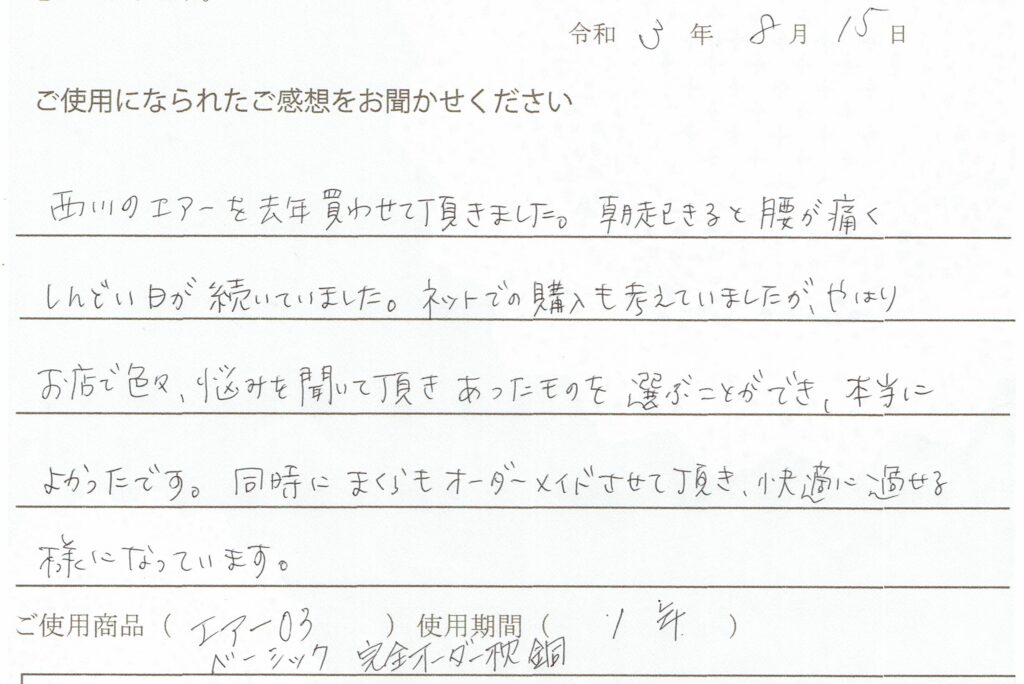 令和 3 年 8 月 15 日
ご使用になられたご感想をお聞かせください
西川のエアーを去年買わせて頂きました。朝起きると腰が痛く
しんどい日が続いていました。ネットでの購入も考えていましたが、やはり
お店で色々、悩みを聞いて頂きあったものを選ぶことができ、本当に
よかったです。同時にまくらもオーダーメイドさせて頂き、快適に過せる
様になっています。
ご使用商品（ エアー03 ）使用期間（ 1年 ）
ベーシック 完全オーダー枕 銅